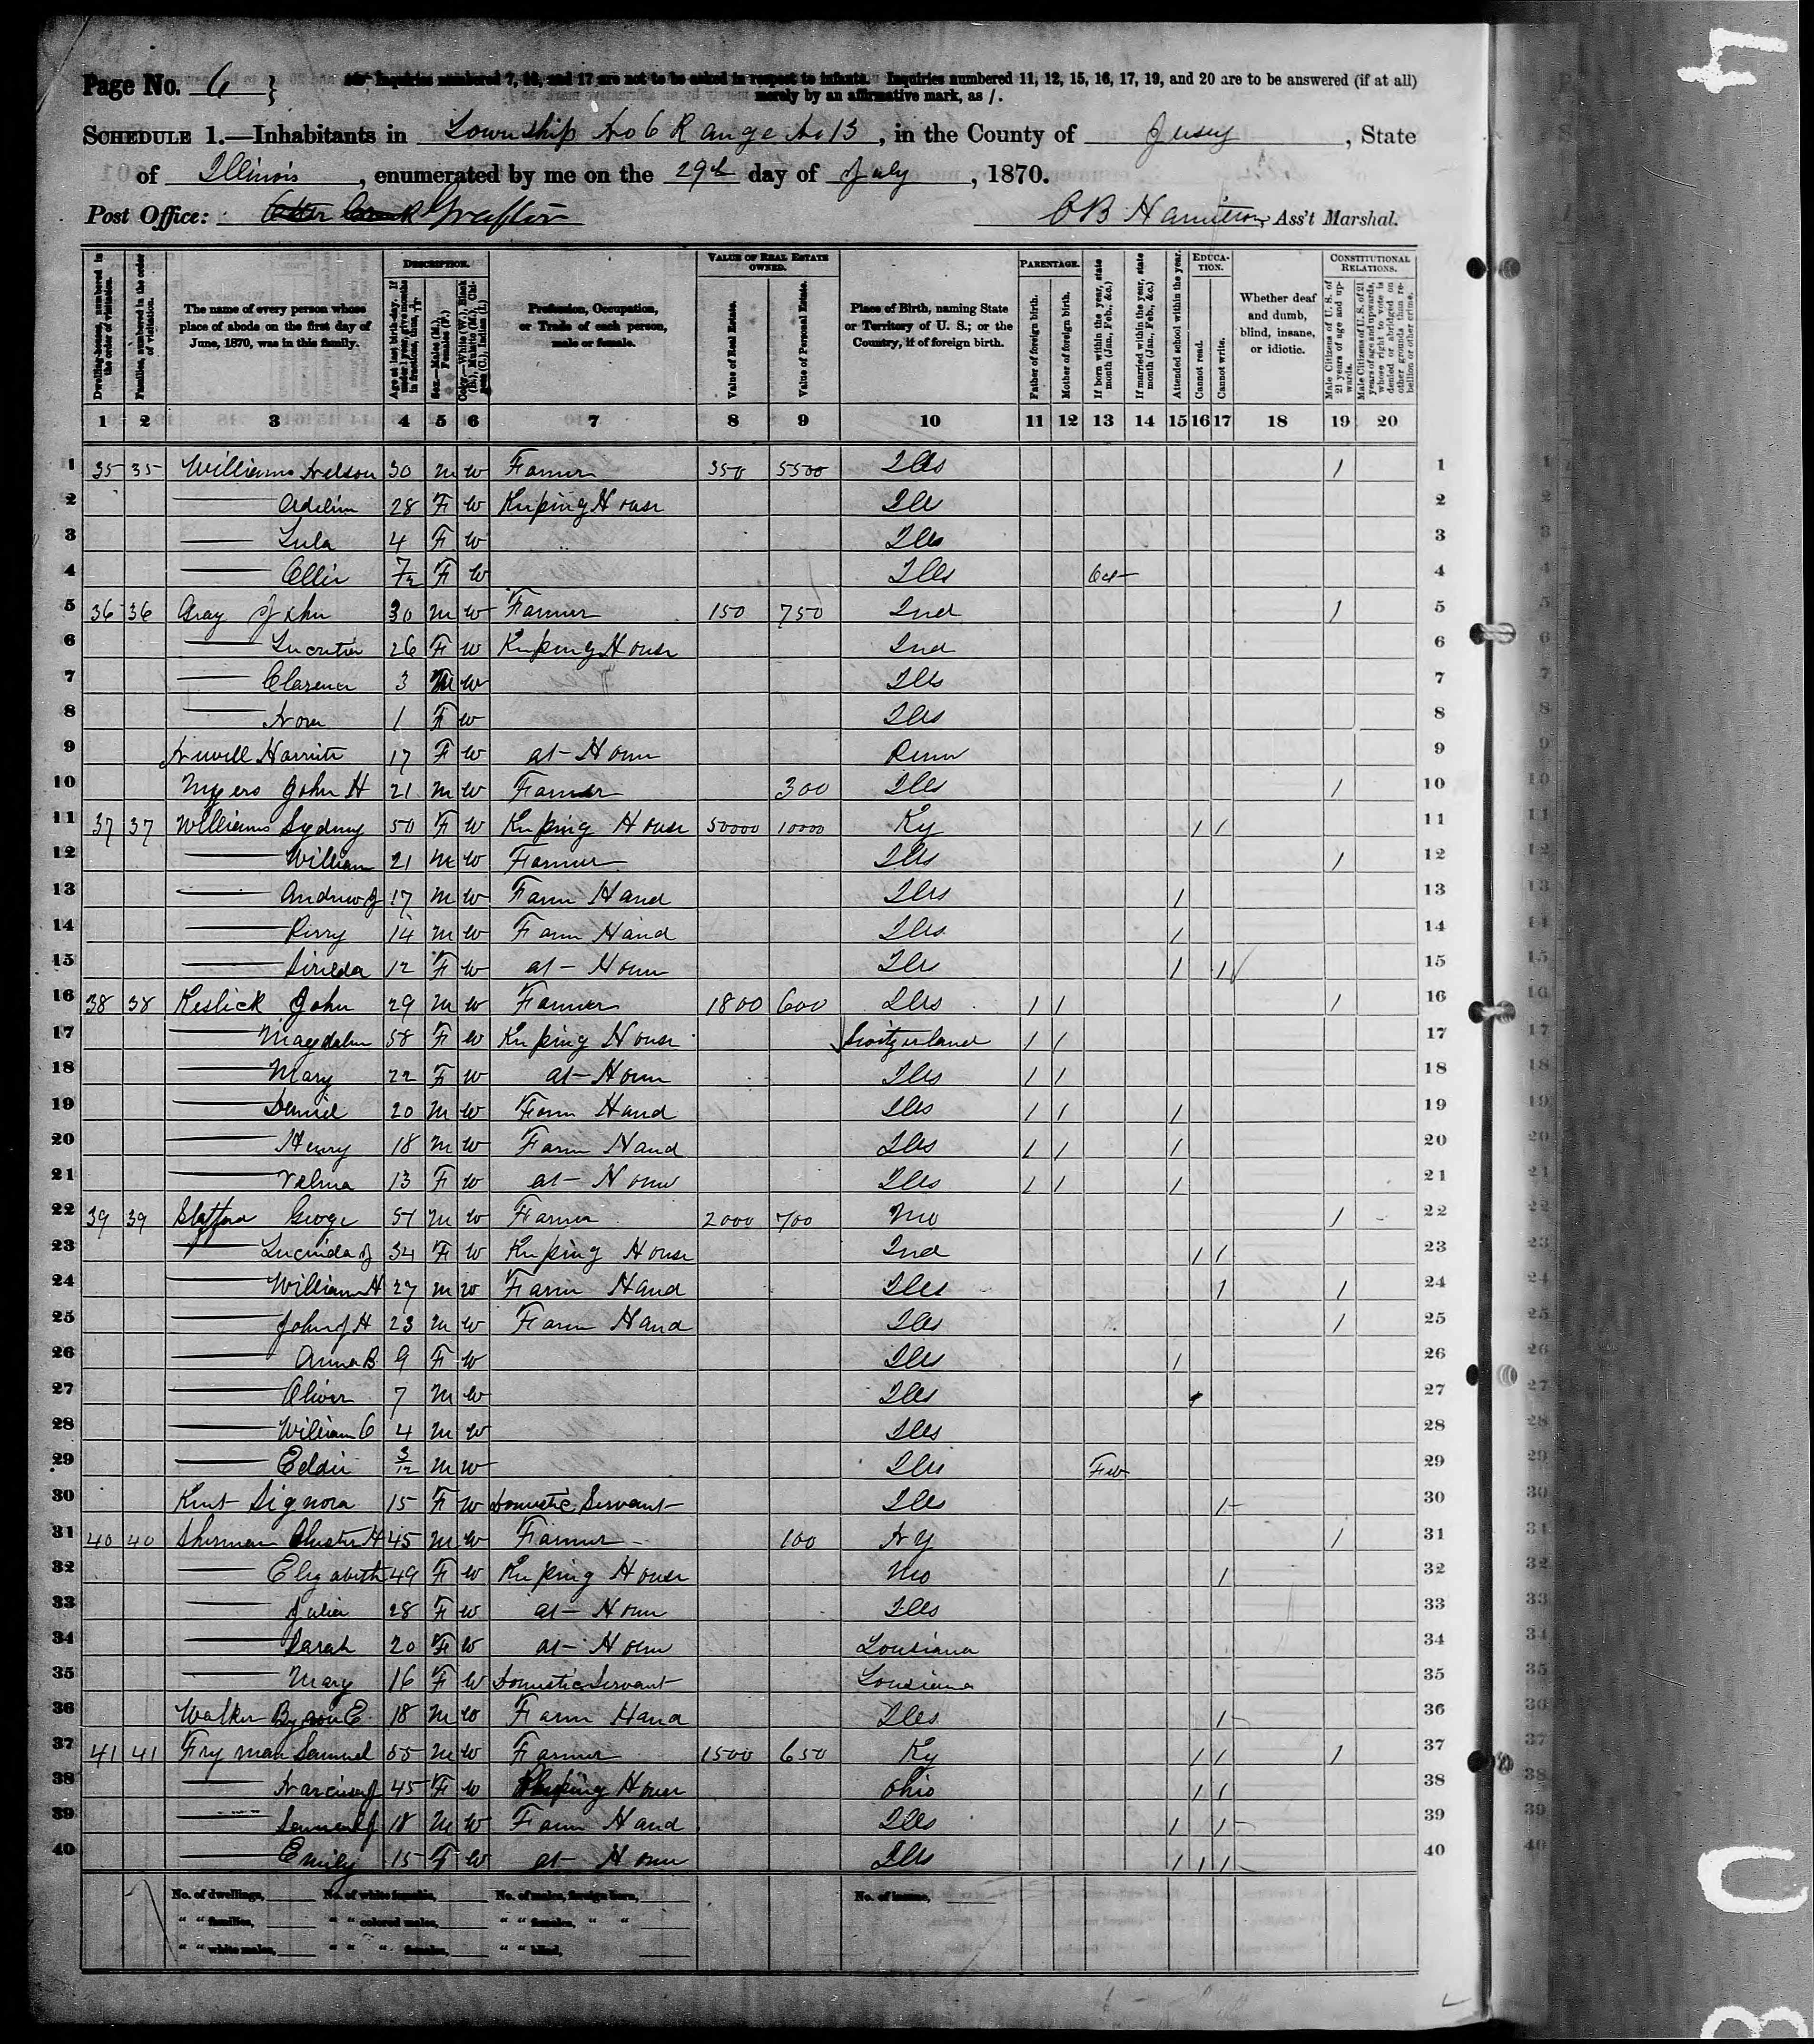 Page No. 6 } Inquiries numbered 7, 16, and 17 are not to be asked in respect to infants. Inquiries numbered 11, 12, 15, 16, 17, 19, and 20 are to be answered (if at all)
merely by an affirmative mark, as /.
SCHEDULE 1.—Inhabitants in Township No 6 Range No 13, in the County of Jersey, State
of Illinois, enumerated by me on the 29th day of July, 1870.
Post Office: Otter Creek Grafton
C B Hamilton, Ass't Marshal.
Dwelling-houses, numbered in the order of visitation.
Families, numbered in the order of visitation.
The name of every person whose place of abode on the first day of June, 1870, was in this family.
DESCRIPTION.
Age at last birth-day. If under 1 year, give months in fractions, thus,
Sex.—Males (M.), Females (F.)
Color.—White (W.), Black (B.), Mulatto (M.), Chinese (C.), Indian (I.)
Profession, Occupation, or Trade of each person, male or female.
VALUE OF REAL ESTATE OWNED.
Value of Real Estate.
Value of Personal Estate.
Place of Birth, naming State or Territory of U. S.; or the Country, if of foreign birth.
PARENTAGE.
Father of foreign birth.
Mother of foreign birth.
If born within the year, state month (Jan., Feb., &c.)
If married within the year, state month (Jan., Feb., &c.)
Attended school within the year.
EDUCATION.
Cannot read.
Cannot write.
Whether deaf and dumb, blind, insane, or idiotic.
CONSTITUTIONAL RELATIONS.
Male Citizens of U. S. of 21 years of age and upwards.
Male Citizens of U. S. of 21 years of age and upwards, whose right to vote is denied or abridged on other grounds than rebellion or other crime.
1 2 3 4 5 6 7 8 9 10 11 12 13 14 15 16 17 18 19 20
1 35 35 Williams Nelson 30 M W Farmer 350 5500 Ills / 1
2 — Adeline 28 F W Keeping House Ill 2
3 — Lula 4 F W Ills 3
4 — Ollie 7/12 F W Ills Oct 4
5 36 36 Gray John 30 M W Farmer 150 750 Ind / 5
6 — Lucretia 26 F W Keeping House Ind 6
7 — Clarence 3 M W Ills 7
8 — Nora 1 F W Ills 8
9 Newell Harriett 17 F W at Home Penn 9
10 Myers John H 21 M W Farmer 300 Ills / 10
11 37 37 Williams Sydney 50 F W Keeping House 50000 10000 Ky / / 11
12 — William 21 M W Farmer Ills / 12
13 — Andrew J 17 M W Farm Hand Ills / 13
14 — Perry 14 M W Farm Hand Ills / 14
15 — 12 F W at Home Ills / / 15
16 38 38 Keslick John 29 M W Farmer 1800 600 Ills / / / 16
17 — Magdalen 58 F W Keeping House Switzerland / / 17
18 — Mary 22 F W at Home Ills / / 18
19 — Daniel 20 M W Farm Hand Ills / / / 19
20 — Henry 18 M W Farm Hand Ills / / / 20
21 — Velma 13 F W at Home Ills / / / 21
22 39 39 George 51 M W Farmer 2000 700 Mo / 22
23 — Lucinda J 34 F W Keeping House Ind / / 23
24 — William H 27 M W Farm Hand Ills / / 24
25 — John J H 23 M W Farm Hand Ills / 25
26 — Anna B 9 F W Ills / 26
27 — Oliver 7 M W Ills 27
28 — William C 4 M W Ills 28
29 — Eddie 3/12 M W Ills Feb 29
30 Kent Signora 15 F W Domestic Servant Ills / 30
31 40 40 Sherman Chester H 45 M W Farmer 100 N Y / 31
32 — Elizabeth 49 F W Keeping House Mo / 32
33 — Julia 28 F W at Home Ills 33
34 — Sarah 20 F W at Home Louisiana 34
35 — Mary 16 F W Domestic Servant Louisiana 35
36 Walker Byron E 18 M W Farm Hand Ills / 36
37 41 41 Fryman Samuel 55 M W Farmer 1500 650 Ky / / / 37
38 — Narcissa J 45 F W Keeping House Ohio / / 38
39 — Samuel J 18 M W Farm Hand Ills / / 39
40 — Emily 15 F W at Home Ills / / / 40
No. of dwellings, No. of white females, No. of males, foreign born, No. of insane,
" " families, " " colored males, " " females, " "
" " white males, " " " females, " " blind,